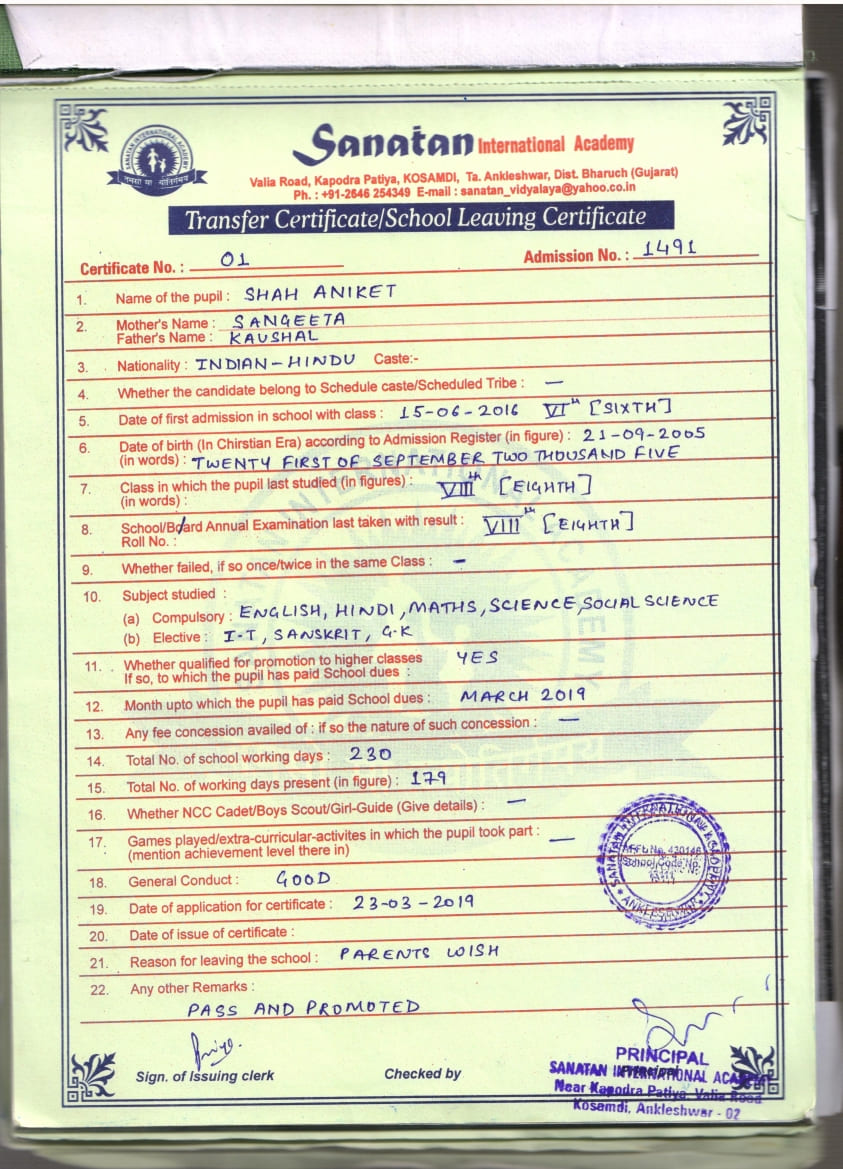 SANATAN INTERNATIONAL ACADEMY
Sanatan International Academy
Valia Road, Kapodra Patiya, KOSAMDI, Ta. Ankleshwar, Dist. Bharuch (Gujarat)
Ph. : +91-2646 254349 E-mail : sanatan_vidyalaya@yahoo.co.in
Transfer Certificate/School Leaving Certificate
Certificate No. : 01 Admission No. : 1491
1. Name of the pupil : SHAH ANIKET
2. Mother's Name : SANGEETA
Father's Name : KAUSHAL
3. Nationality : INDIAN - HINDU Caste:-
4. Whether the candidate belong to Schedule caste/Scheduled Tribe : —
5. Date of first admission in school with class : 15-06-2016 VIth [SIXTH]
6. Date of birth (In Chirstian Era) according to Admission Register (in figure) : 21-09-2005
(in words) : TWENTY FIRST OF SEPTEMBER TWO THOUSAND FIVE
7. Class in which the pupil last studied (in figures) : VIIIth [EIGHTH]
(in words) :
8. School/Board Annual Examination last taken with result : VIIIth [EIGHTH]
Roll No. :
9. Whether failed, if so once/twice in the same Class : —
10. Subject studied :
(a) Compulsory : ENGLISH, HINDI, MATHS, SCIENCE, SOCIAL SCIENCE
(b) Elective : I-T, SANSKRIT, G-K
11. Whether qualified for promotion to higher classes YES
If so, to which the pupil has paid School dues :
12. Month upto which the pupil has paid School dues : MARCH 2019
13. Any fee concession availed of : if so the nature of such concession : —
14. Total No. of school working days : 230
15. Total No. of working days present (in figure) : 179
16. Whether NCC Cadet/Boys Scout/Girl-Guide (Give details) : —
17. Games played/extra-curricular-activites in which the pupil took part : —
(mention achievement level there in)
18. General Conduct : GOOD
19. Date of application for certificate : 23-03-2019
20. Date of issue of certificate :
21. Reason for leaving the school : PARENTS WISH
22. Any other Remarks :
PASS AND PROMOTED
SANATAN INTERNATIONAL ACADEMY
AFFI. No. 430146
School Code No.
13111
ANKLESHWAR
Sign. of Issuing clerk Checked by
PRINCIPAL
SANATAN INTERNATIONAL ACADEMY
Near Kapodra Patiya, Valia Road
Kosamdi, Ankleshwar - 02